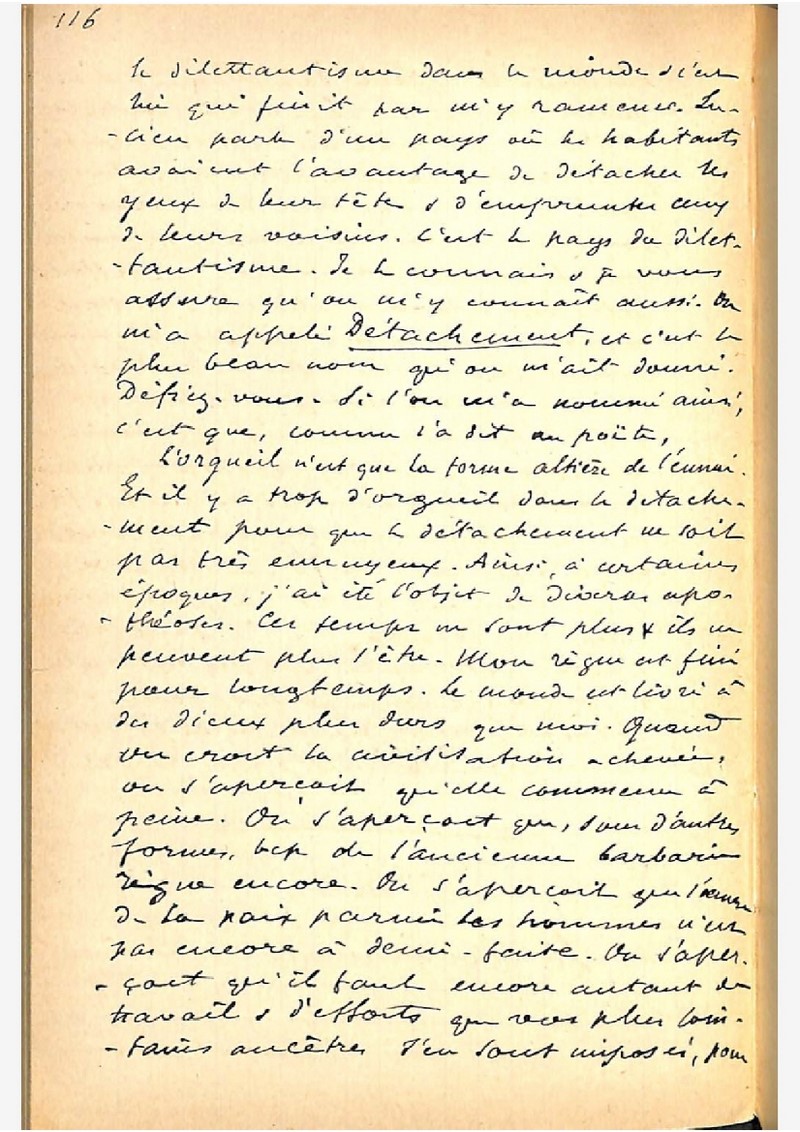 116
le dilettantisme dans le monde s'est
lui qui finit par m'y ramener. Lu-
-cien parle d'un pays où les habitants
avaient l'avantage de détacher les
yeux de leur tête & d'emprunter ceux
de leurs voisins. C'est le pays du dilet-
-tantisme. Je le connais & je vous
assure qu'on m'y connaît aussi. On
m'a appelé Détachement, et c'est le
plus beau nom qu'on m'ait donné.
Défiez-vous. Si l'on m'a nommé ainsi,
c'est que, comme l'a dit un poëte,
L'orgueil n'est que la forme altière de l'ennui.
Et il y a trop d'orgueil dans le détache-
-ment pour que le détachement ne soit
pas très ennuyeux. Ainsi, à certaines
époques, j'ai été l'objet de diverses apo-
-théoses. Ces temps ne sont plus & ils ne
peuvent plus l'être. Mon règne est fini
pour longtemps. Le monde est livré à
des dieux plus durs que moi. Quand
on croit la civilisation achevée,
on s'aperçoit qu'elle commence à
peine. On s'aperçoit que, sous d'autres
formes, bcp de l'ancienne barbarie
règne encore. On s'aperçoit que l'œuvre
de la paix parmi les hommes n'est
pas encore à demi-faite. On s'aper-
-çoit qu'il faut encore autant de
travail & d'efforts que vos plus loin-
-tains ancêtres s'en sont imposés, pour